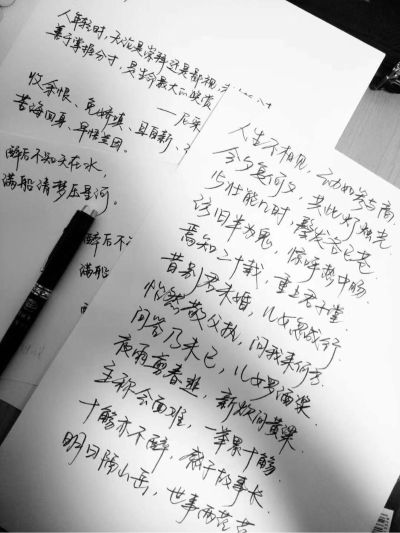 人年轻时,无论是崇拜还是鄙视,
善于掌握分寸,是生命最大的收获
——尼采
收余恨、免娇嗔、且自新、
苦海回身、早悟兰因。
醉后不知天在水,
满船清梦压星河。
醉后不
满船
人生不相见,动如参与商.
今夕复何夕,共此灯烛光
少壮能几时,鬓发各已苍
访旧半为鬼,惊呼热中肠.
焉知二十载,重上君子堂.
昔别君未婚,儿女忽成行.
怡然敬父执,问我来何方.
问答乃未已,儿女罗酒浆.
夜雨剪春韭,新炊间黄粱.
主称会面难,一举累十觞.
十觞亦不醉,感子故事长.
明日隔山岳,世事两茫茫